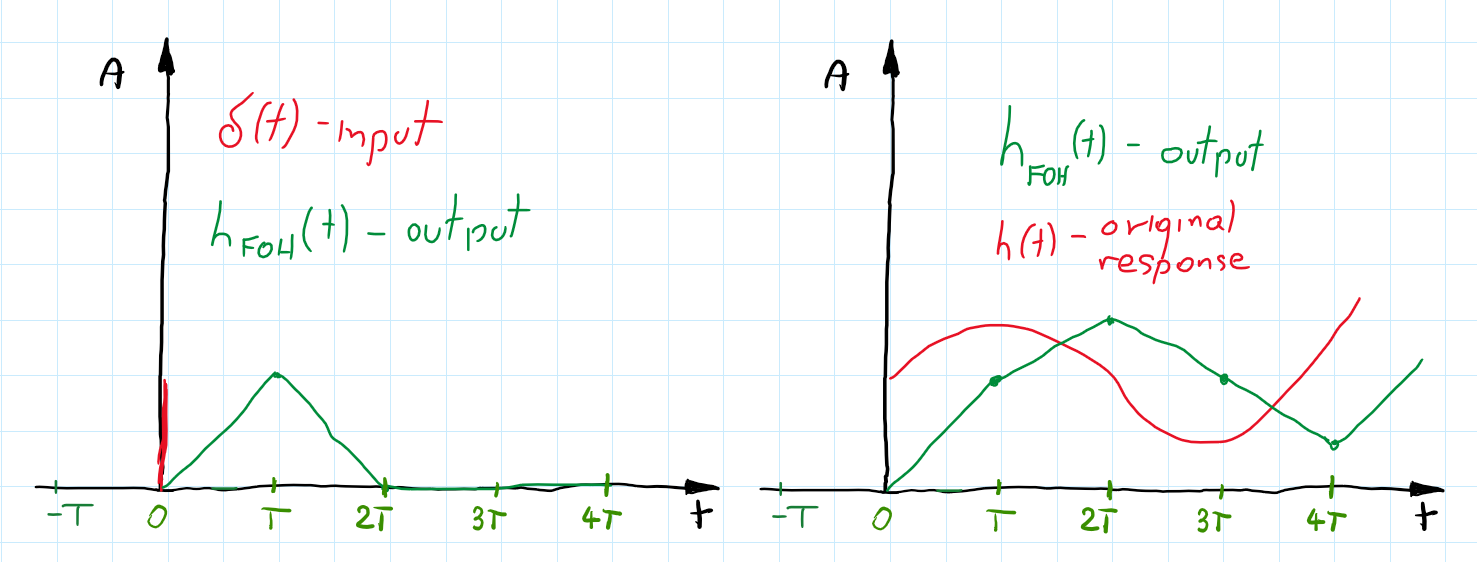 A
δ(t) - input
h FOH (t) - output
-T 0 T 2T 3T 4T t
A
h FOH (t) - output
h(t) - original
response
-T 0 T 2T 3T 4T t